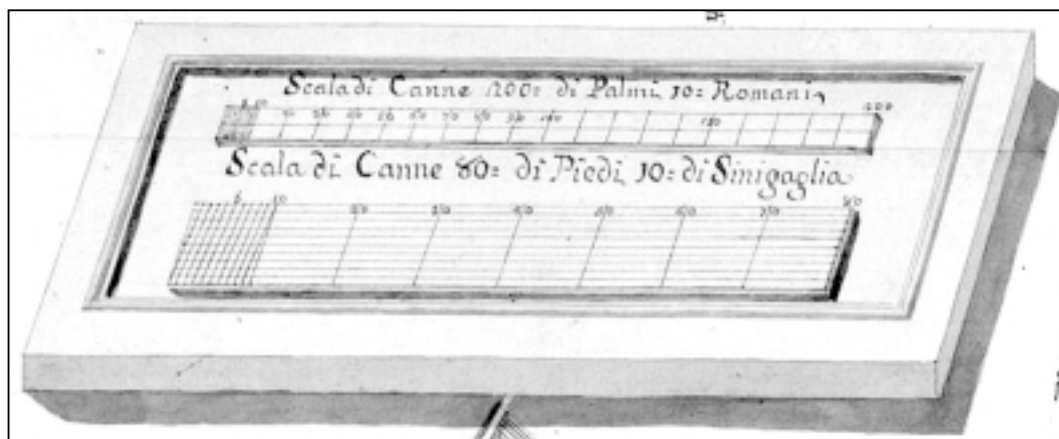 Scala di Canne 200= di Palmi 10= Romani
5 10 20 30 40 50 60 70 80 90 100 150 200
Scala di Canne 80= di Piedi 10= di Sinigaglia
5 10 20 30 40 50 60 70 80